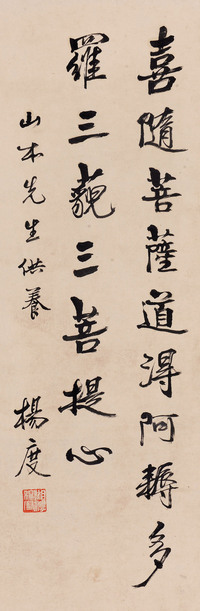 喜隨菩薩道得阿耨多
羅三藐三菩提心
山本先生供養
楊度